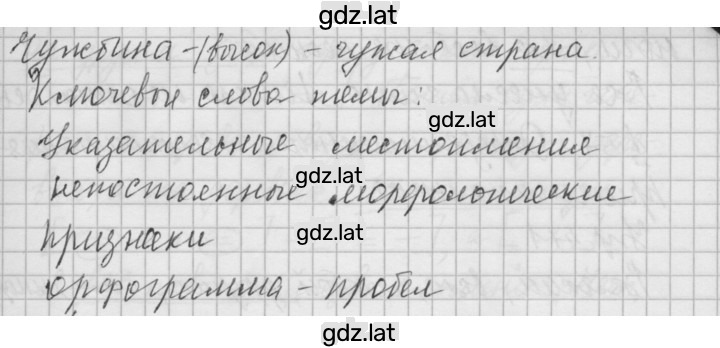 gdz.lat
Чужбина -(высок) - чужая страна.
Ключевые слова темы:
gdz.lat
Указательные местоимения
gdz.lat
непостоянные морфологические
признаки
gdz.lat
орфограмма - пробел
gdz.lat